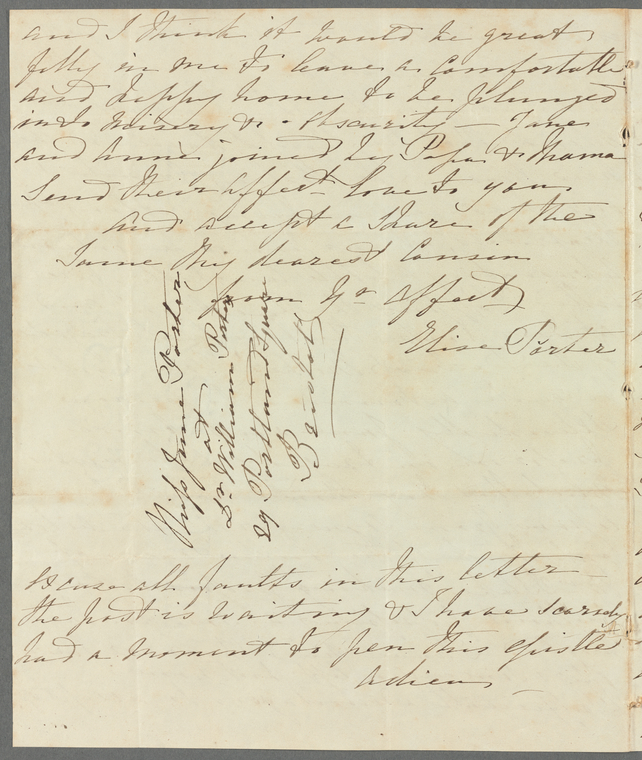 and I think it would be great
folly in me to leave a comfortable
and happy home to be plunged
into misery & obscurity — Jane
and Annie joined by Papa & Mama
Send their affect love to you,
and accept a share of the
same my dearest Cousin
from yr affect
Elise Porter
Miss Jane Porter
at
Dr William Porter
29 Portland Square
Bristol
excuse all faults in this letter
the post is waiting & I have scarcely
had a moment to pen this epistle
adieu —